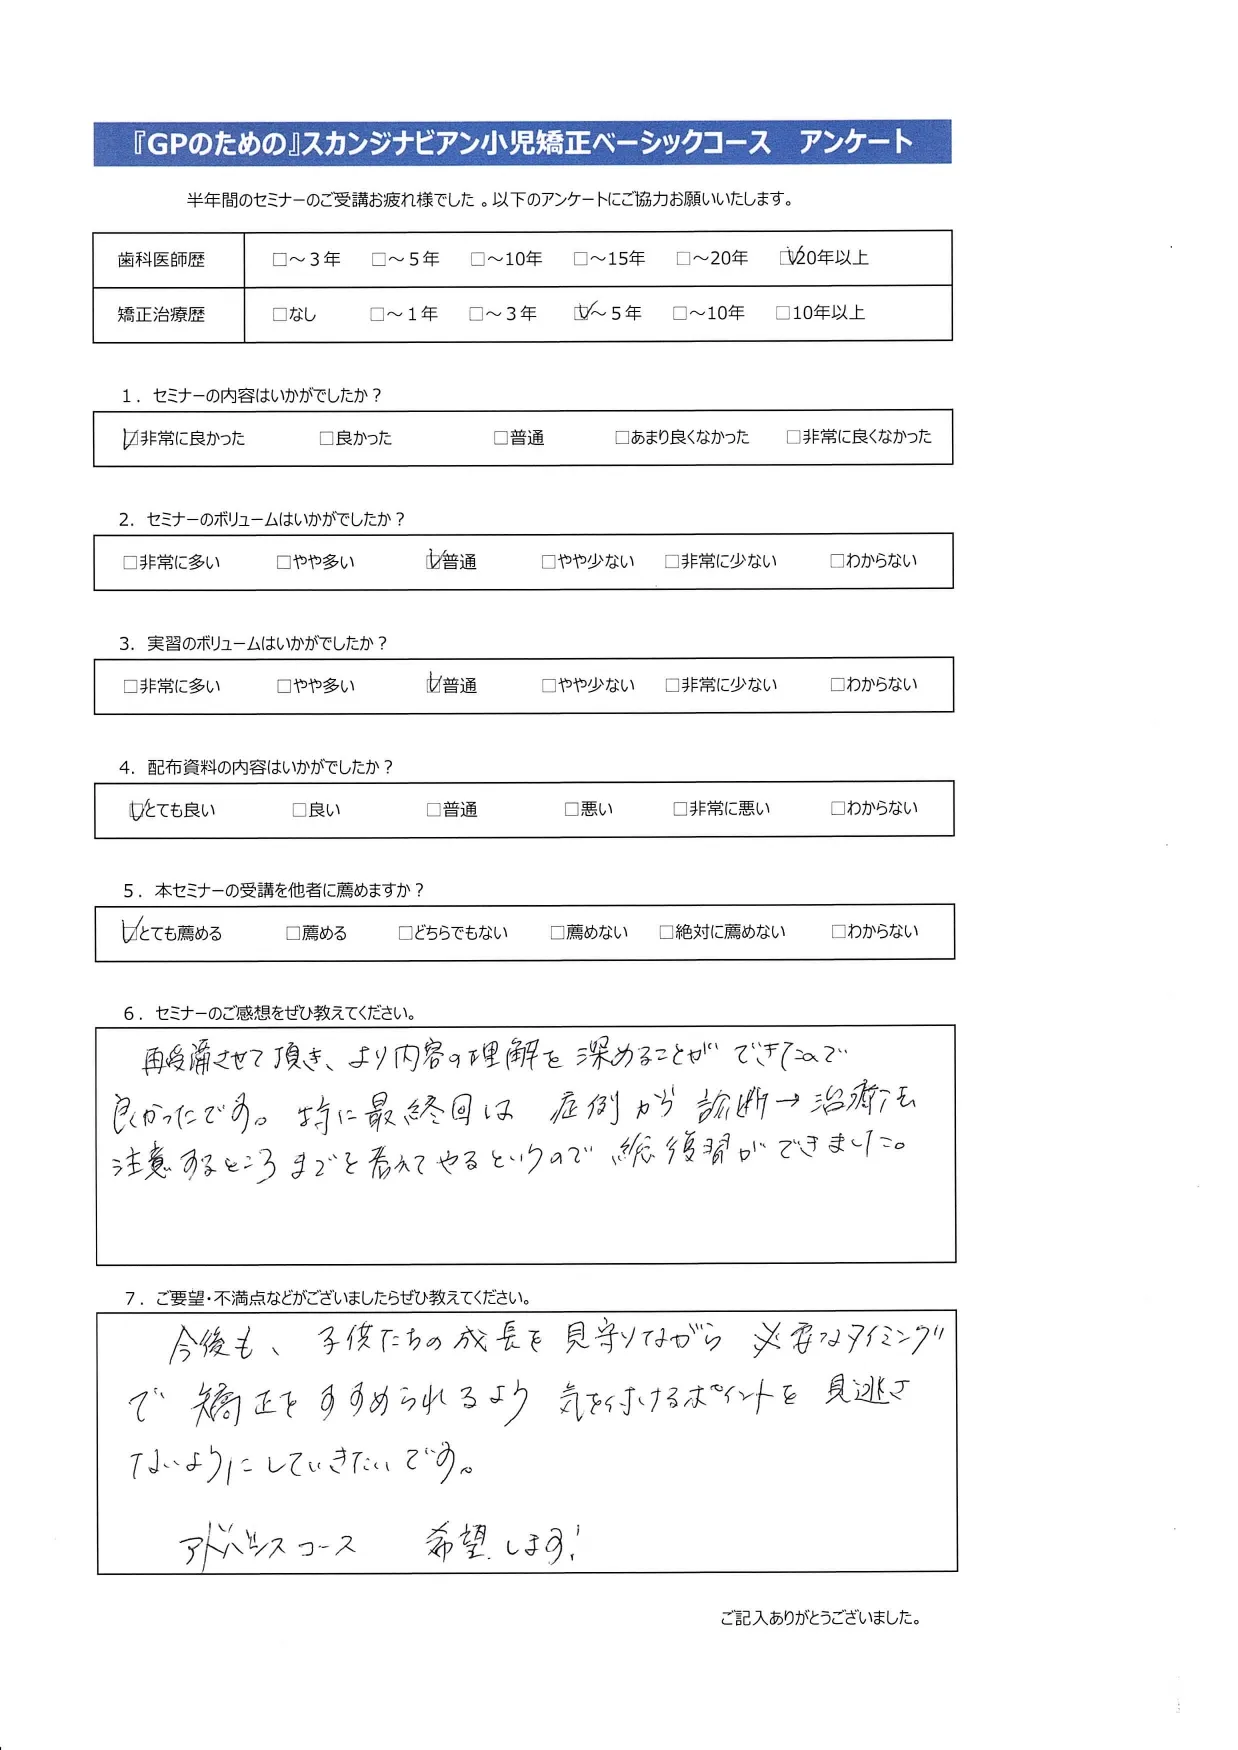 『GPのための』スカンジナビアン小児矯正ベーシックコース　アンケート
半年間のセミナーのご受講お疲れ様でした。以下のアンケートにご協力お願いいたします。
歯科医師歴 □～３年 □～５年 □～10年 □～15年 □～20年 ☑20年以上
矯正治療歴 □なし □～１年 □～３年 ☑～５年 □～10年 □10年以上
１．セミナーの内容はいかがでしたか？
☑非常に良かった □良かった □普通 □あまり良くなかった □非常に良くなかった
2．セミナーのボリュームはいかがでしたか？
□非常に多い □やや多い ☑普通 □やや少ない □非常に少ない □わからない
3．実習のボリュームはいかがでしたか？
□非常に多い □やや多い ☑普通 □やや少ない □非常に少ない □わからない
4．配布資料の内容はいかがでしたか？
☑とても良い □良い □普通 □悪い □非常に悪い □わからない
５．本セミナーの受講を他者に薦めますか？
☑とても薦める □薦める □どちらでもない □薦めない □絶対に薦めない □わからない
６．セミナーのご感想をぜひ教えてください。
再受講させて頂き、より内容の理解を深めることができたので
良かったです。特に最終回は 症例から 診断→治療法を
注意するところまでを考えてやるというので 総復習ができました。
７．ご要望・不満点などがございましたらぜひ教えてください。
今後も、子供たちの成長を見守りながら 必要なタイミング
で 矯正をすすめられるよう 気を付けるポイントを 見逃さ
ないようにしていきたいです。
アドバンスコース 希望します！
ご記入ありがとうございました。